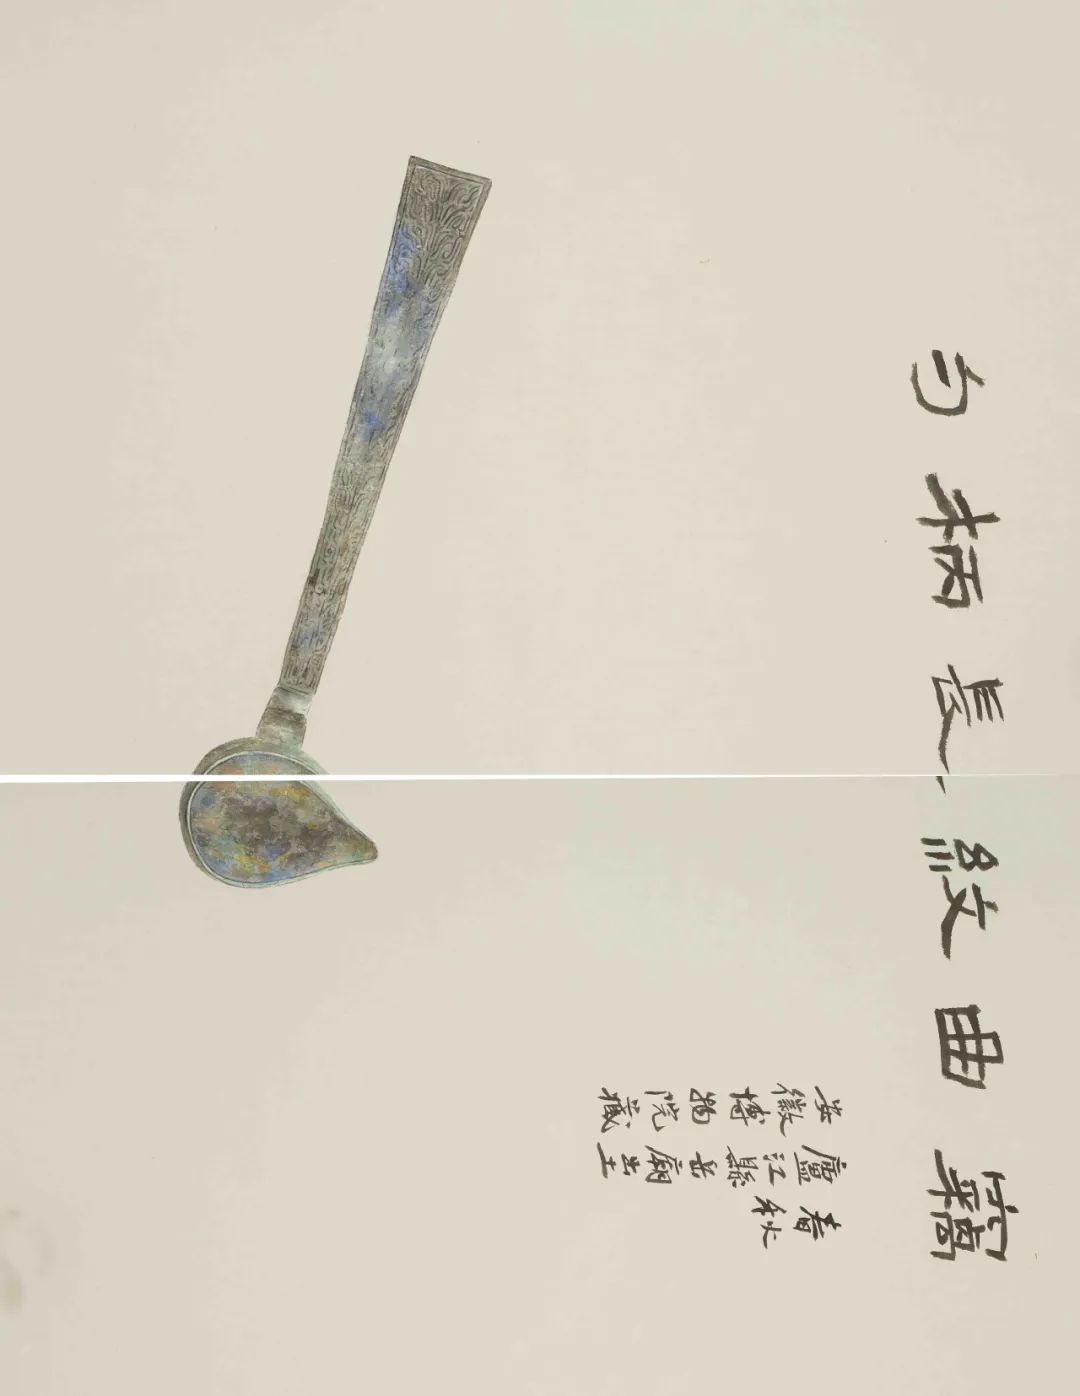 竊曲紋長柄勺
春秋
廬江縣岳廟出土
安徽博物院藏